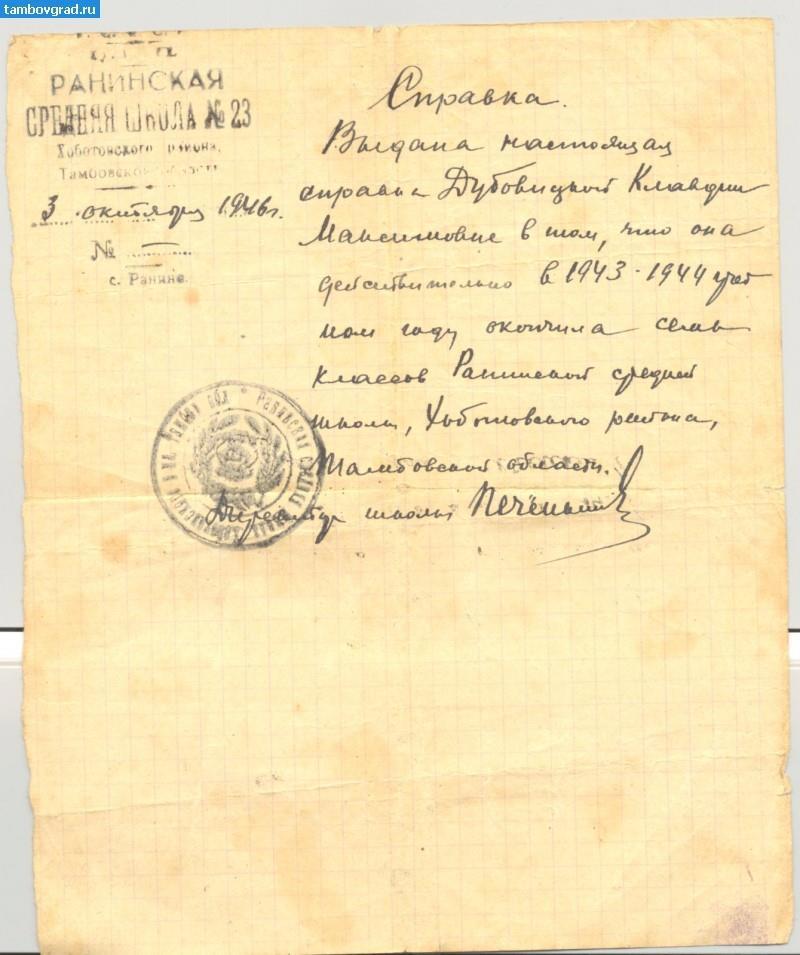 tambovgrad.ru
РАНИНСКАЯ
СРЕДНЯЯ ШКОЛА № 23
Хоботовского района,
Тамбовской области
3 октября 1946 г.
№ —
с. Ранино.
Справка.
Выдана настоящая
справка Дубовицкой Клавдии
Максимовне в том, что она
действительно в 1943-1944 учеб
ном году окончила семь
классов Ранинской средней
школы, Хоботовского района,
Тамбовской области.
Директор школы